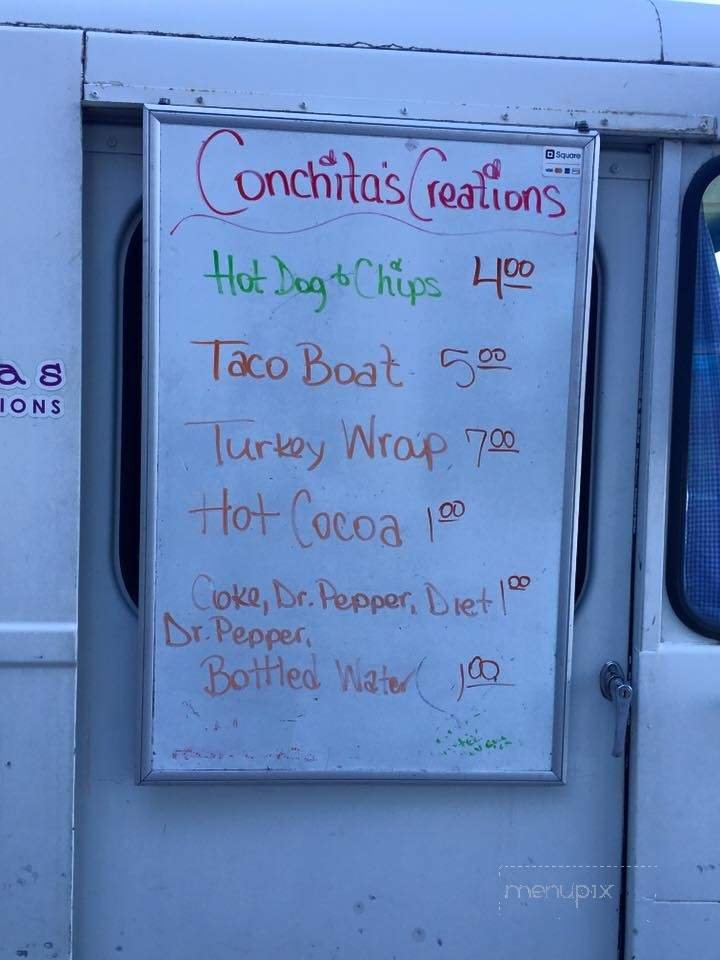 Conchita's Creations
Square
Hot Dog & Chips 4.00
Taco Boat 5.00
Turkey Wrap 7.00
Hot Cocoa 1.00
Coke, Dr. Pepper, Diet 1.00
Dr. Pepper,
Bottled Water 1.00
as
IONS
menupix